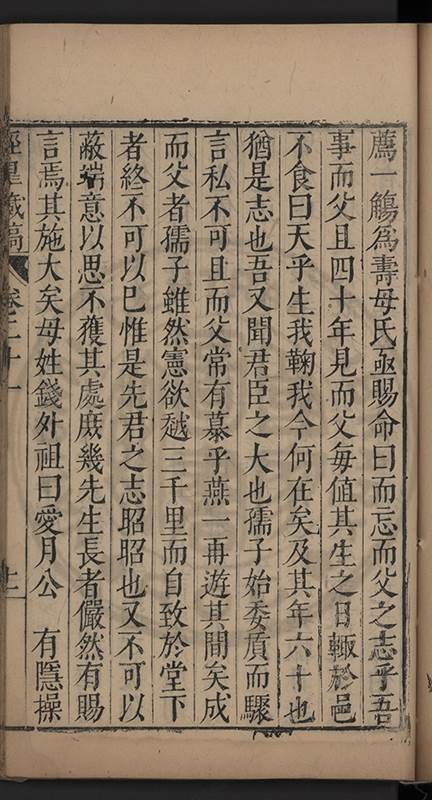 薦一觴為壽母氏亟賜命曰而忘而父之志乎吾
事而父且四十年見而父每値其生之日輙於邑
不食曰天乎生我鞠我今何在矣及其年六十也
猶是志也吾又聞君臣之大也孺子始委質而驟
言私不可且而父常有慕乎燕一再遊其間矣成
而父者孺子雖然憲欲越三千里而自致於堂下
者終不可以已惟是先君之志昭昭也又不可以
蔽端意以思不獲其處庻幾先生長者儼然有賜
言焉其施大矣母姓錢外祖曰愛月公 有隱操
稿 卷二十一 三